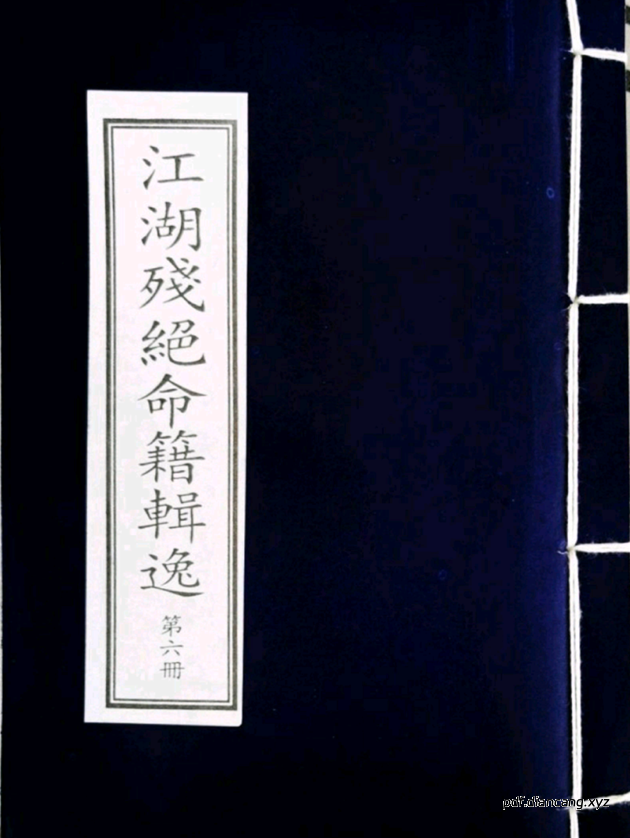 江湖殘絕命籍輯逸
第六冊
pdf.diancang.xyz